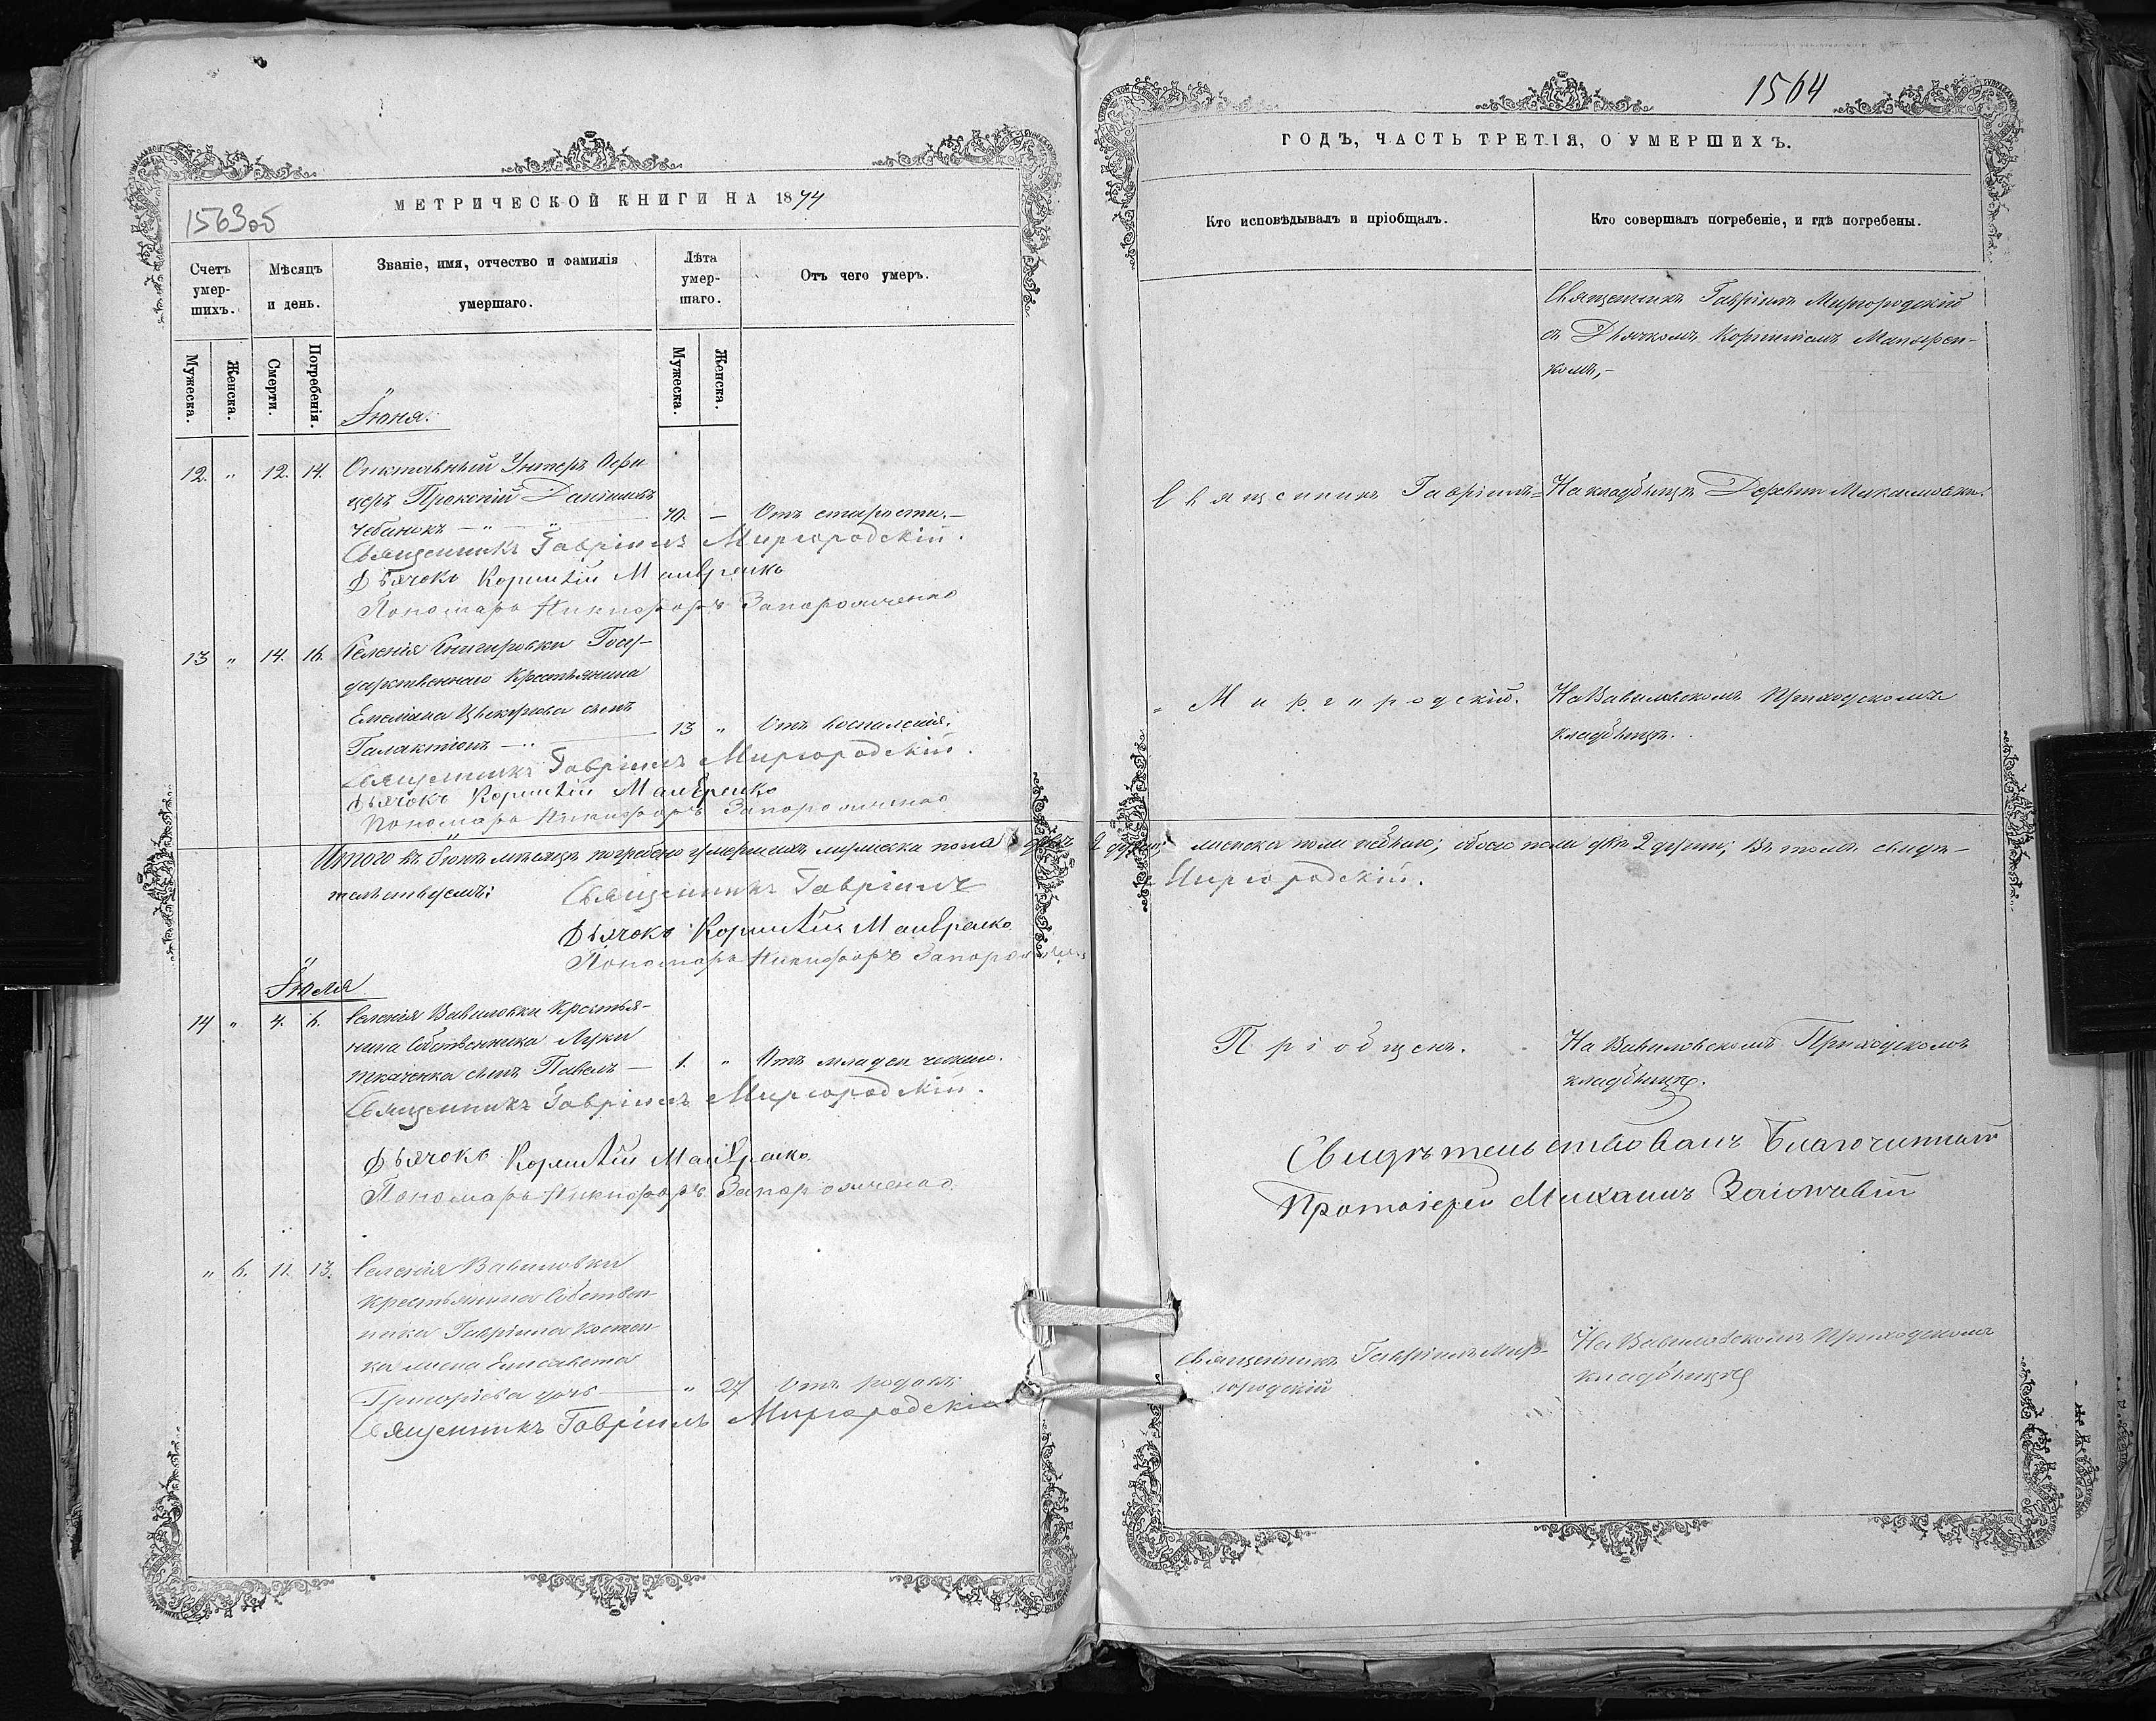 1563об
МЕТРИЧЕСКОЙ КНИГИ НА 1874
Счетъ умер-шихъ.
Мѣсяцъ и день.
Званіе, имя, отчество и фамилія умершаго.
Лѣта умер-шаго.
Отъ чего умеръ.
Мужеска.
Женска.
Смерти.
Погребенія.
Мужеска.
Женска.
Іюня.
12. " 12. 14. Отставный Унтеръ Офи
церъ Прокопій Даніиловъ
Чебанокъ — " — " 70. — Отъ старости.—
Священникъ Гавріилъ Миргородскій.
Дьячокъ Корнилій
Пономарь Никифоръ Запорожченко
13 " 14. 16. Селенія Снигировки Госу-
дарственнаго Крестьянина
Емеліана сынъ
Галактіонъ — " 13 " Отъ воспаленія.
Священникъ Гавріилъ Миргородскій.
Дьячокъ Корнилій
Пономарь Никифоръ Запорожченко
Итого въ Іюнѣ мѣсяцѣ погребено умершихъ мужеска пола двѣ 2 души; женска пола небыло; обоего пола двѣ 2 души; Въ томъ свидѣ-
тельствуемъ: Священникъ Гавріилъ Миргородскій.
Дьячокъ Корнилій
Пономарь Никифоръ Запорожченко
Іюля
14 " 4. 6. Селенія Вавиловки Крестья-
нина Собственника Луки
Ткаченка сынъ Павелъ — 1. " Отъ младенческаго.
Священникъ Гавріилъ Миргородскій.
Дьячокъ Корнилій
Пономарь Никифоръ Запорожченко
" 6. 11. 13. Селенія Вавиловки
крестьянина Собствен
ника Гавріила Костен
ка жена Елисавета
Григоріева дочь — " 27 Отъ родовъ
Священникъ Гавріилъ Миргородскій
1564
ГОДЪ, ЧАСТЬ ТРЕТІЯ, О УМЕРШИХЪ.
Кто исповѣдывалъ и пріобщалъ.
Кто совершалъ погребеніе, и гдѣ погребены.
Священникъ Гавріилъ Миргородскій
съ Дьячкомъ Корниліемъ
комъ,-
Священникъ Гавріилъ
На кладбищѣ Деревни
Миргородскій.
На Вавиловскомъ Приходскомъ
кладбищѣ.
Пріобщенъ.
На Вавиловскомъ Приходскомъ
кладбищѣ.
Свидѣтельствовалъ Благочинный
Протоіерей Михаилъ
Священникъ Гавріилъ Мир-
городскій
На Вавиловскомъ Приходскомъ
кладбищѣ